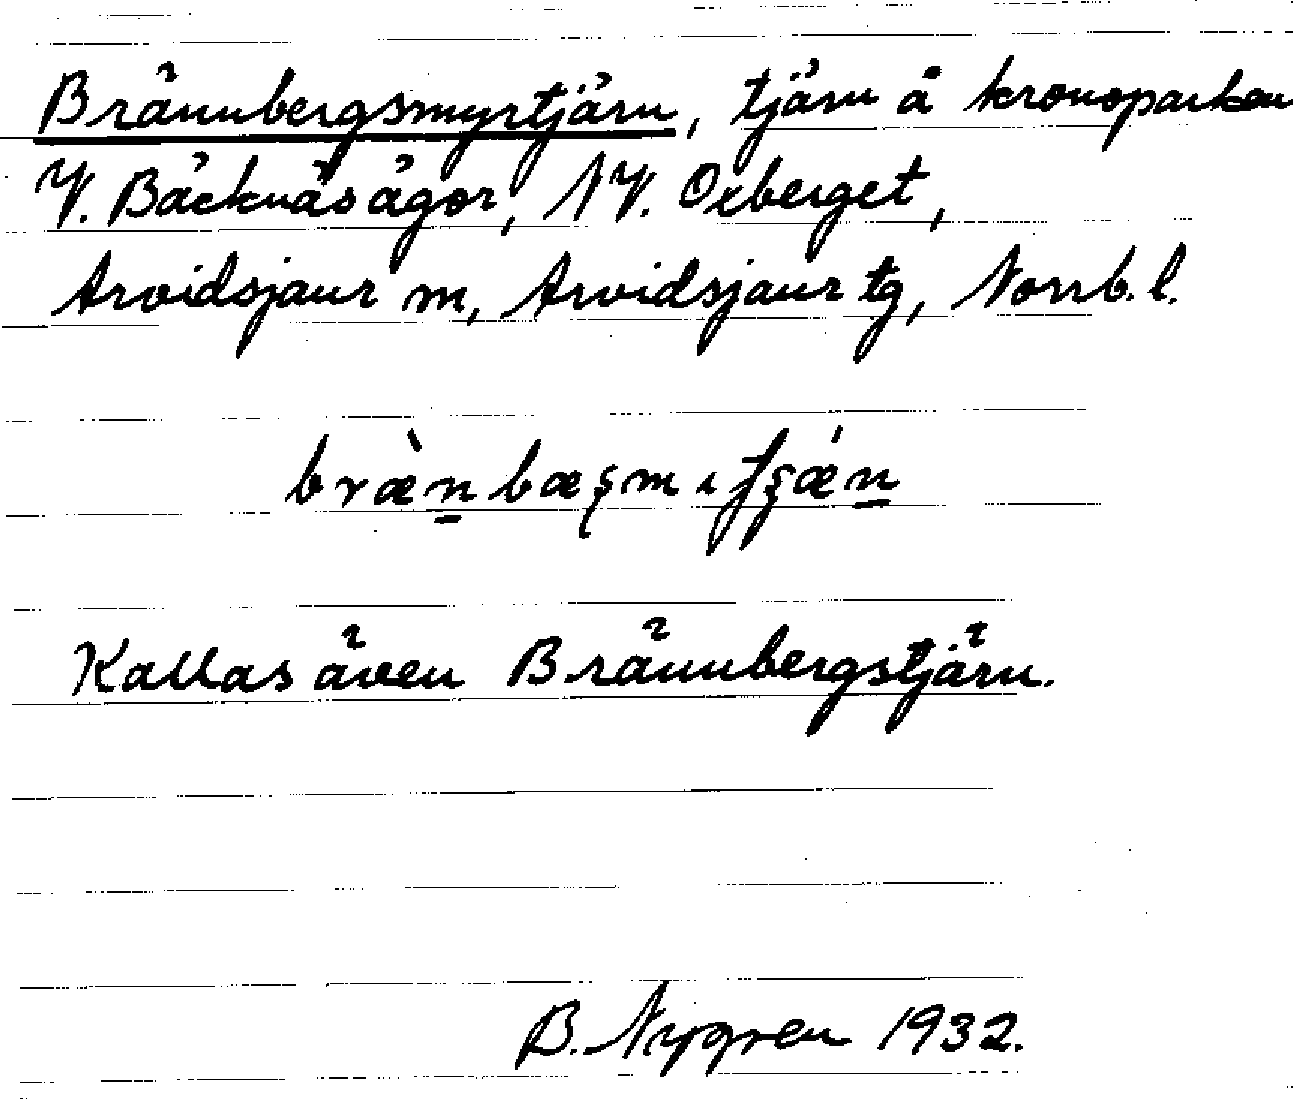 Brännbergsmyrtjärn, tjärn å kronoparken
V. Bäcknäs ägor, NV. Oxberget,
Arvidsjaur m, Arvidsjaur tg, Norrb. l.
Kallas även Brännbergstjärn.
B. Nygren 1932.